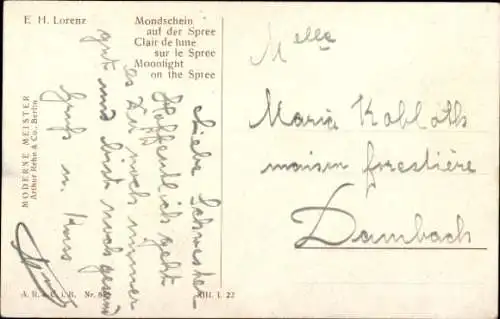 E. H. Lorenz
Mondschein
auf der Spree
Clair de lune
sur le Spree
Moonlight
on the Spree
MODERNE MEISTER
Arthur Rehn & Co., Berlin
Liebe Schwester
Hoffentlich geht
es Dir noch immer
gut und bist noch gesund
Gruß u. Kuss
Melle
Maria Kobloth
maison forestière
Dambach
A. R. & C. i. B. Nr.
XIII. I. 22